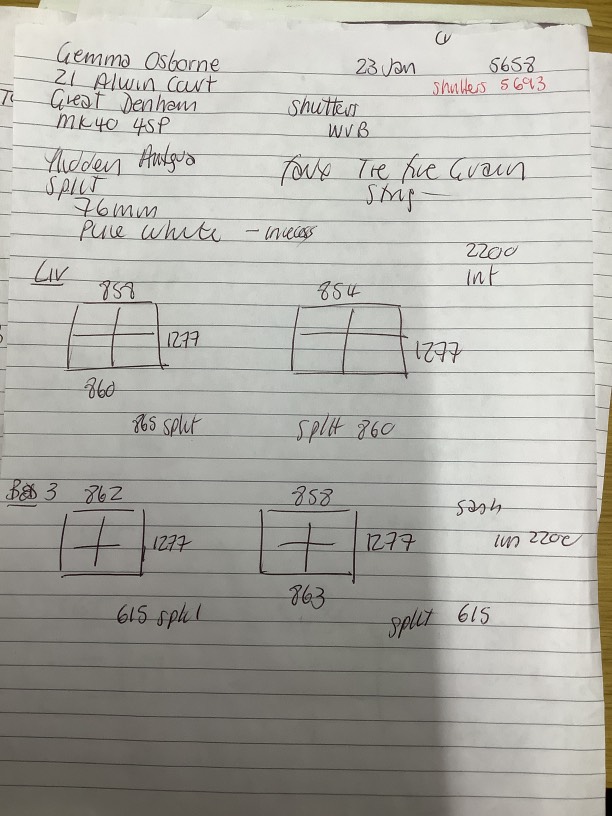 Gemma Osborne 23 Jan 5658
21 Alwin Court shutters 5693
Great Denham shutters
MK40 4SP WVB
Hidden Antigua
Split
76mm
Pure white - in recess
2200
Int
Liv
858 854
1277 1277
860
865 split split 860
Bed 3 862 858
sash
1277 1277
in 2200
863
615 split split 615